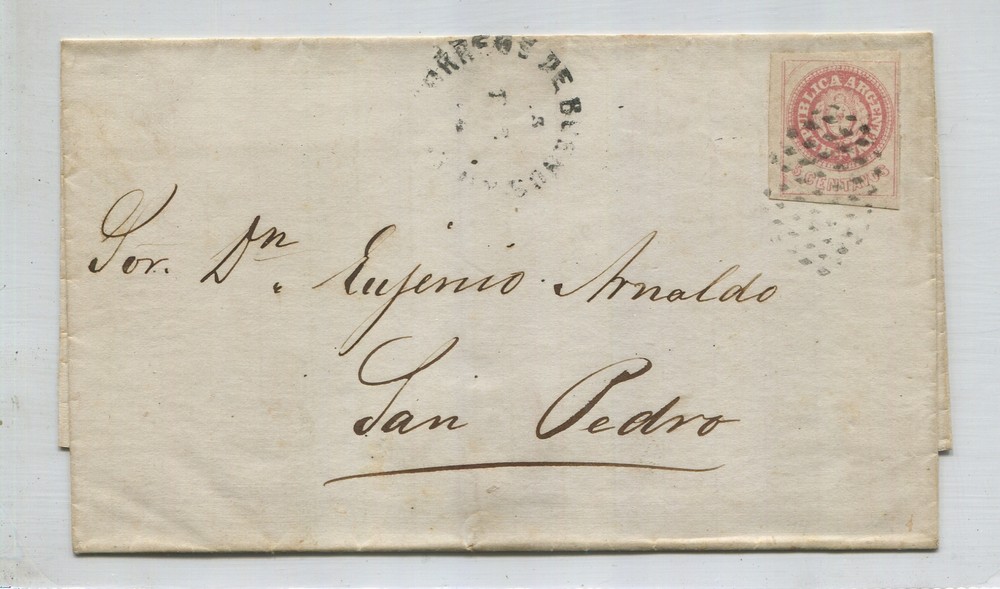 CORREOS DE BUENOS
REPUBLICA ARGENTINA
5 CENTAVOS
Sor. Dn. Eujenio Arnaldo
San Pedro